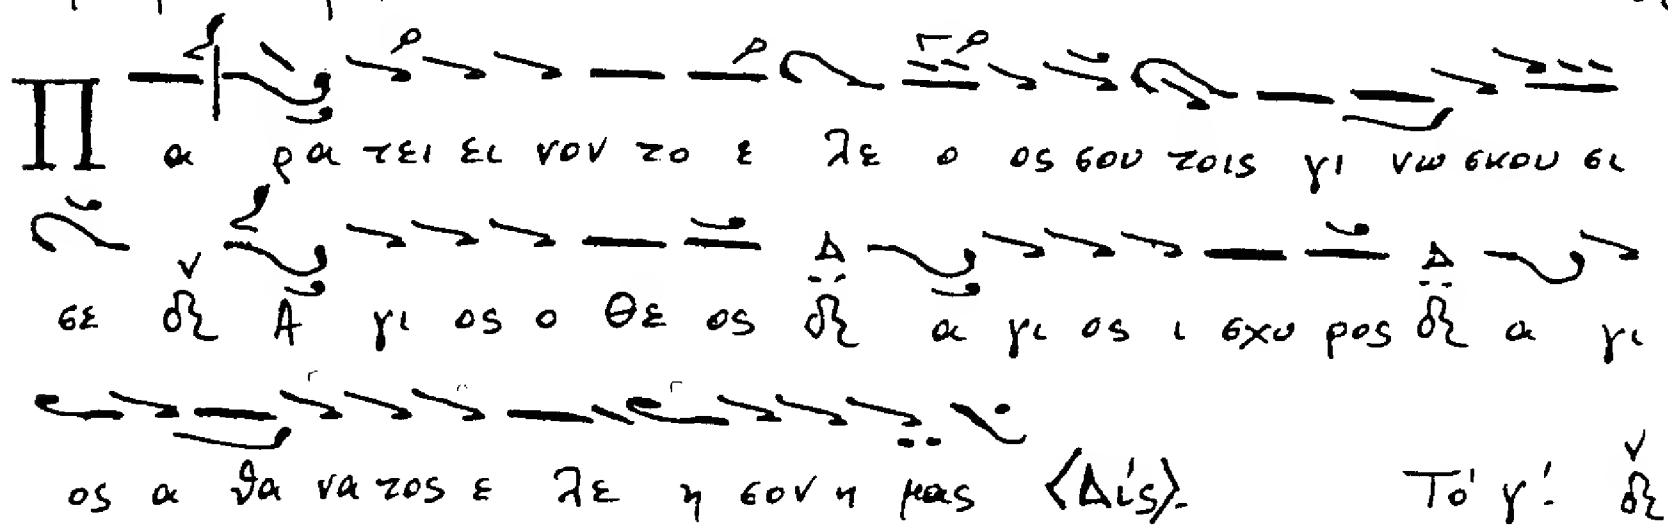 Πα ρα τει ει νον το ε λε ο ος σου τοις γι νω σκου σι
σε Α γι ος ο θε ος Δ α γι ος ι σχυ ρος Δ α γι
ος α θα να τος ε λε η σον η μας <Δίς>. Τό γ'.